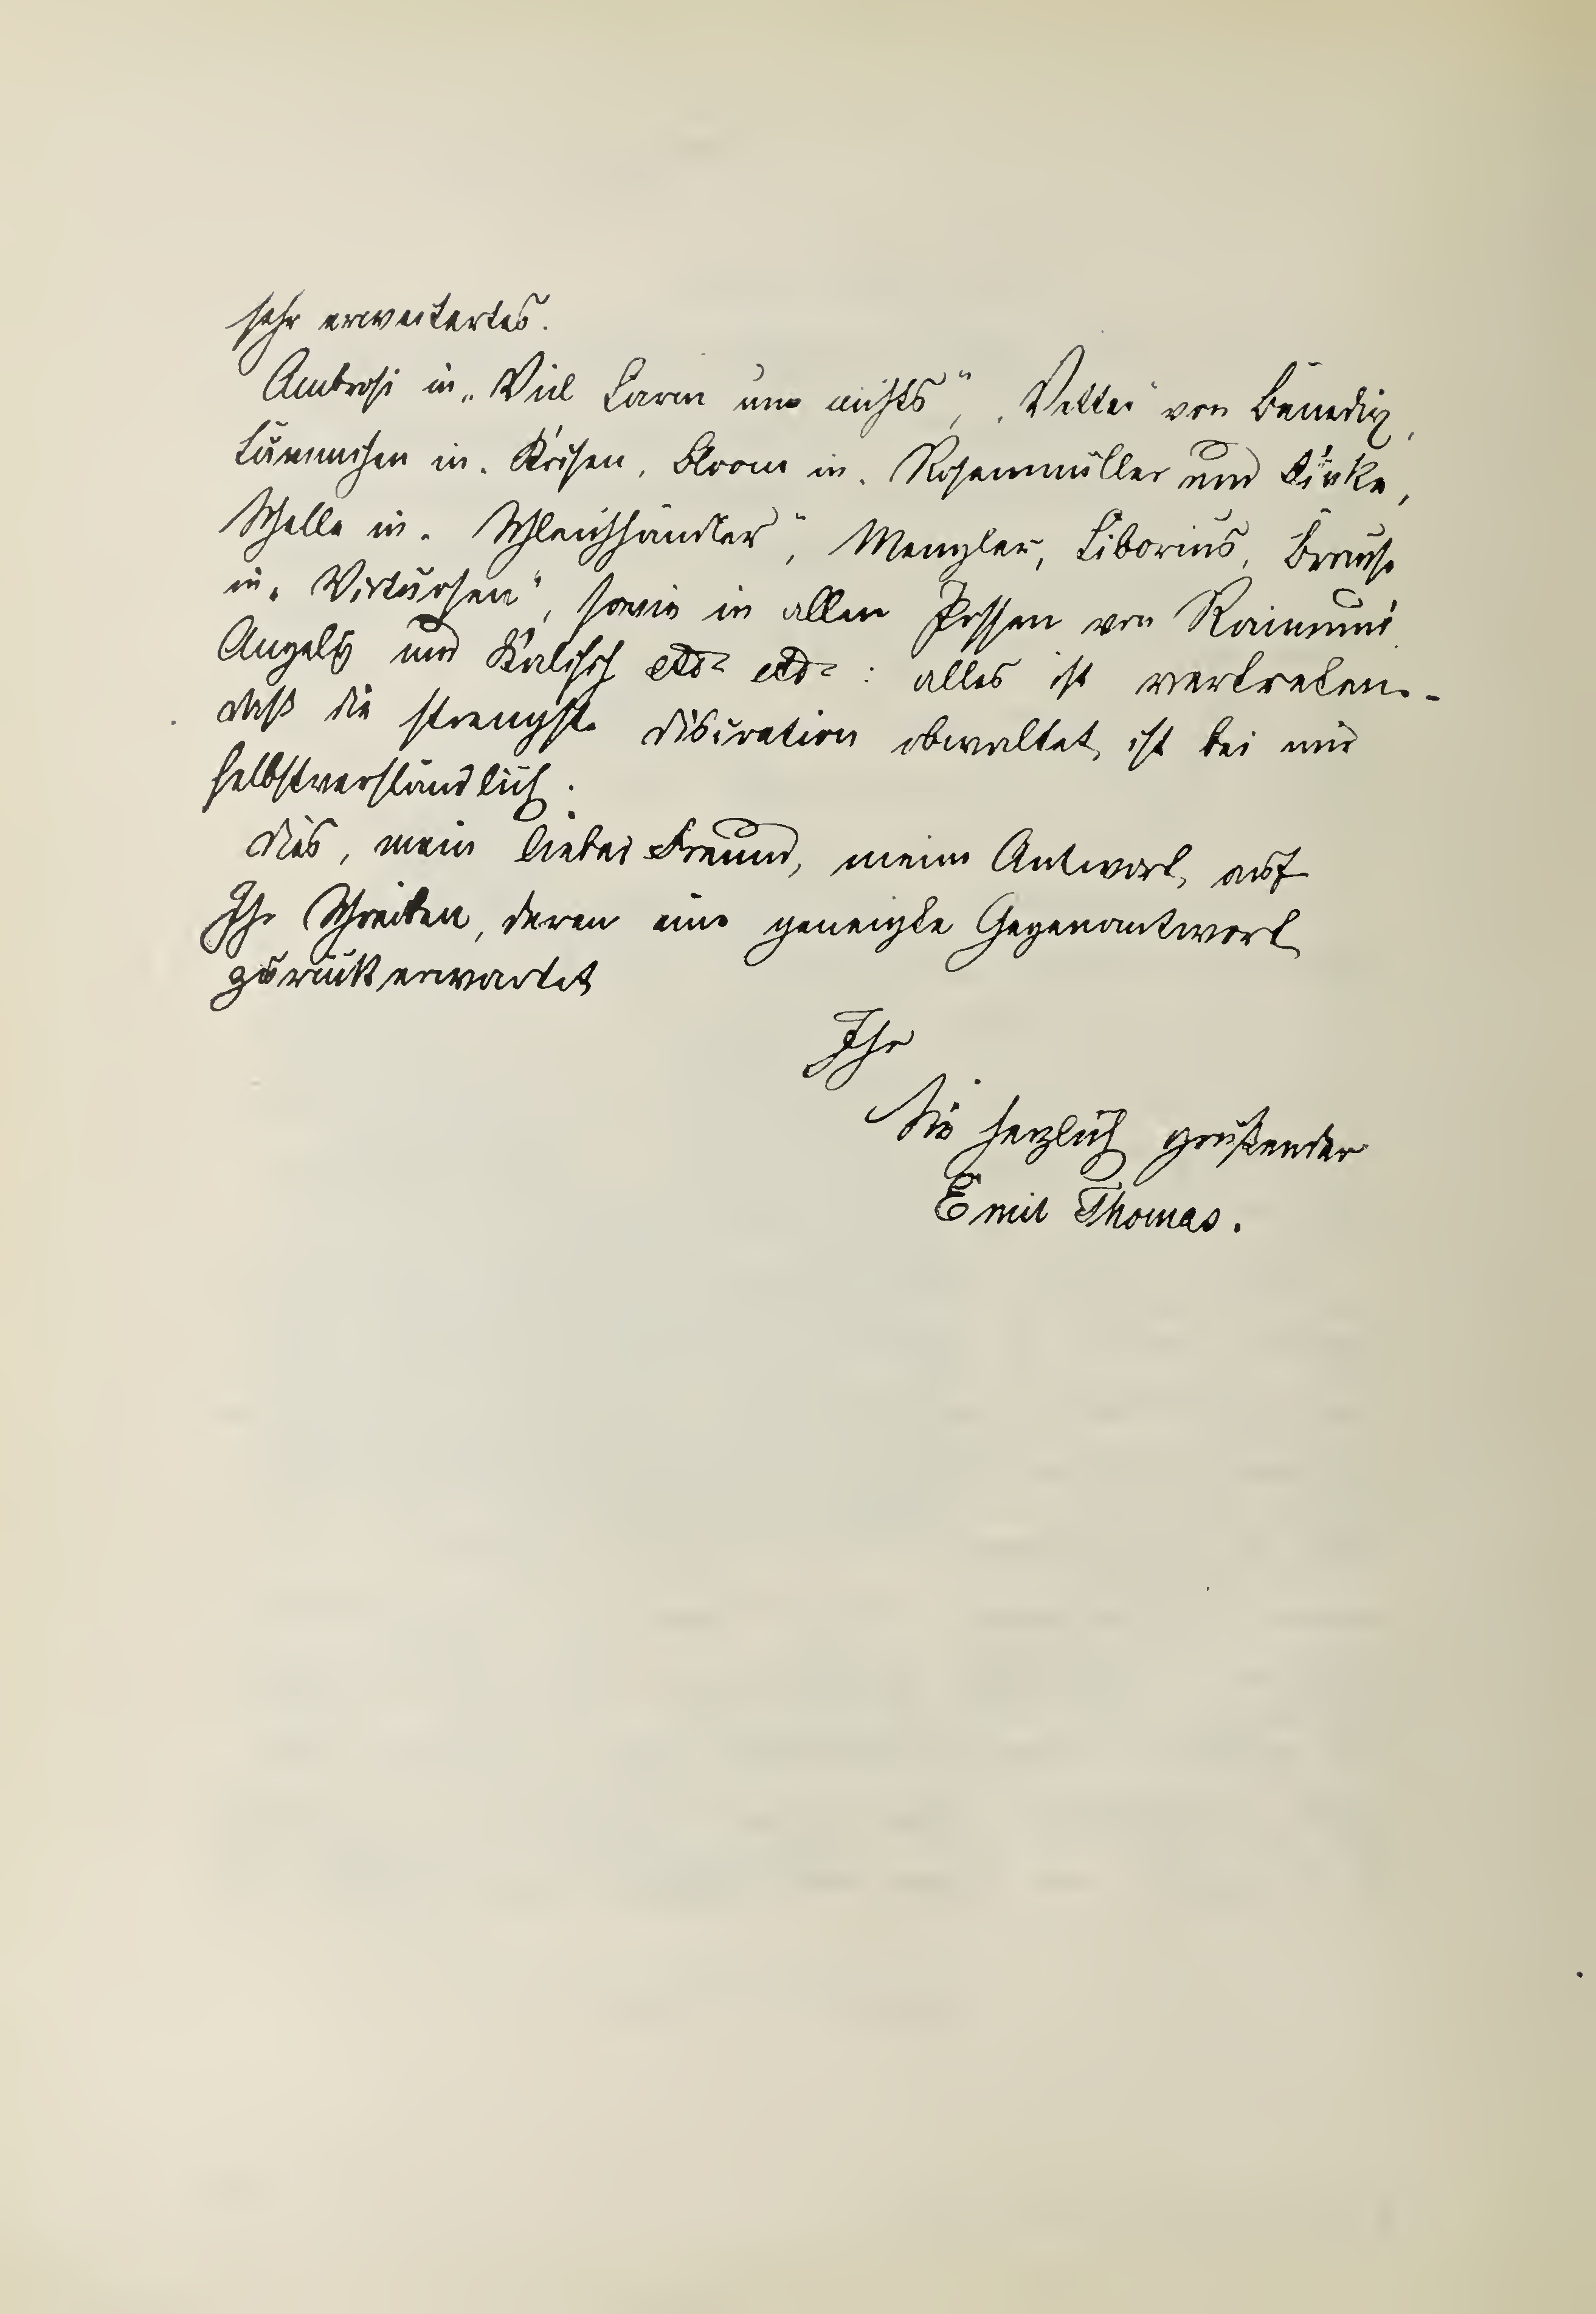 sehr erweitertes.
Ambrosi in „Viel Lärm um nichts“, „Vetter“ von Benedix,
Lämmchen in „Krisen, Bloom in „Rosenmüller und Finke,
Schelle in „Schleichhändler“, Menzler, Liborius, Brause
in „Virtuosen“, sowie in allen Possen von Raimund
Angely und Kalisch etc. etc. : alles ist vertreten. -
daß die strengste discretion obwaltet, ist bei mir
selbstverständlich.
Dies, mein lieber Freund, meine Antwort, auf
Ihr Schreiben, deren eine geneigte Gegenantwort
zurückerwartet
Ihr
Sie herzlich grüßender
Emil Thomas.